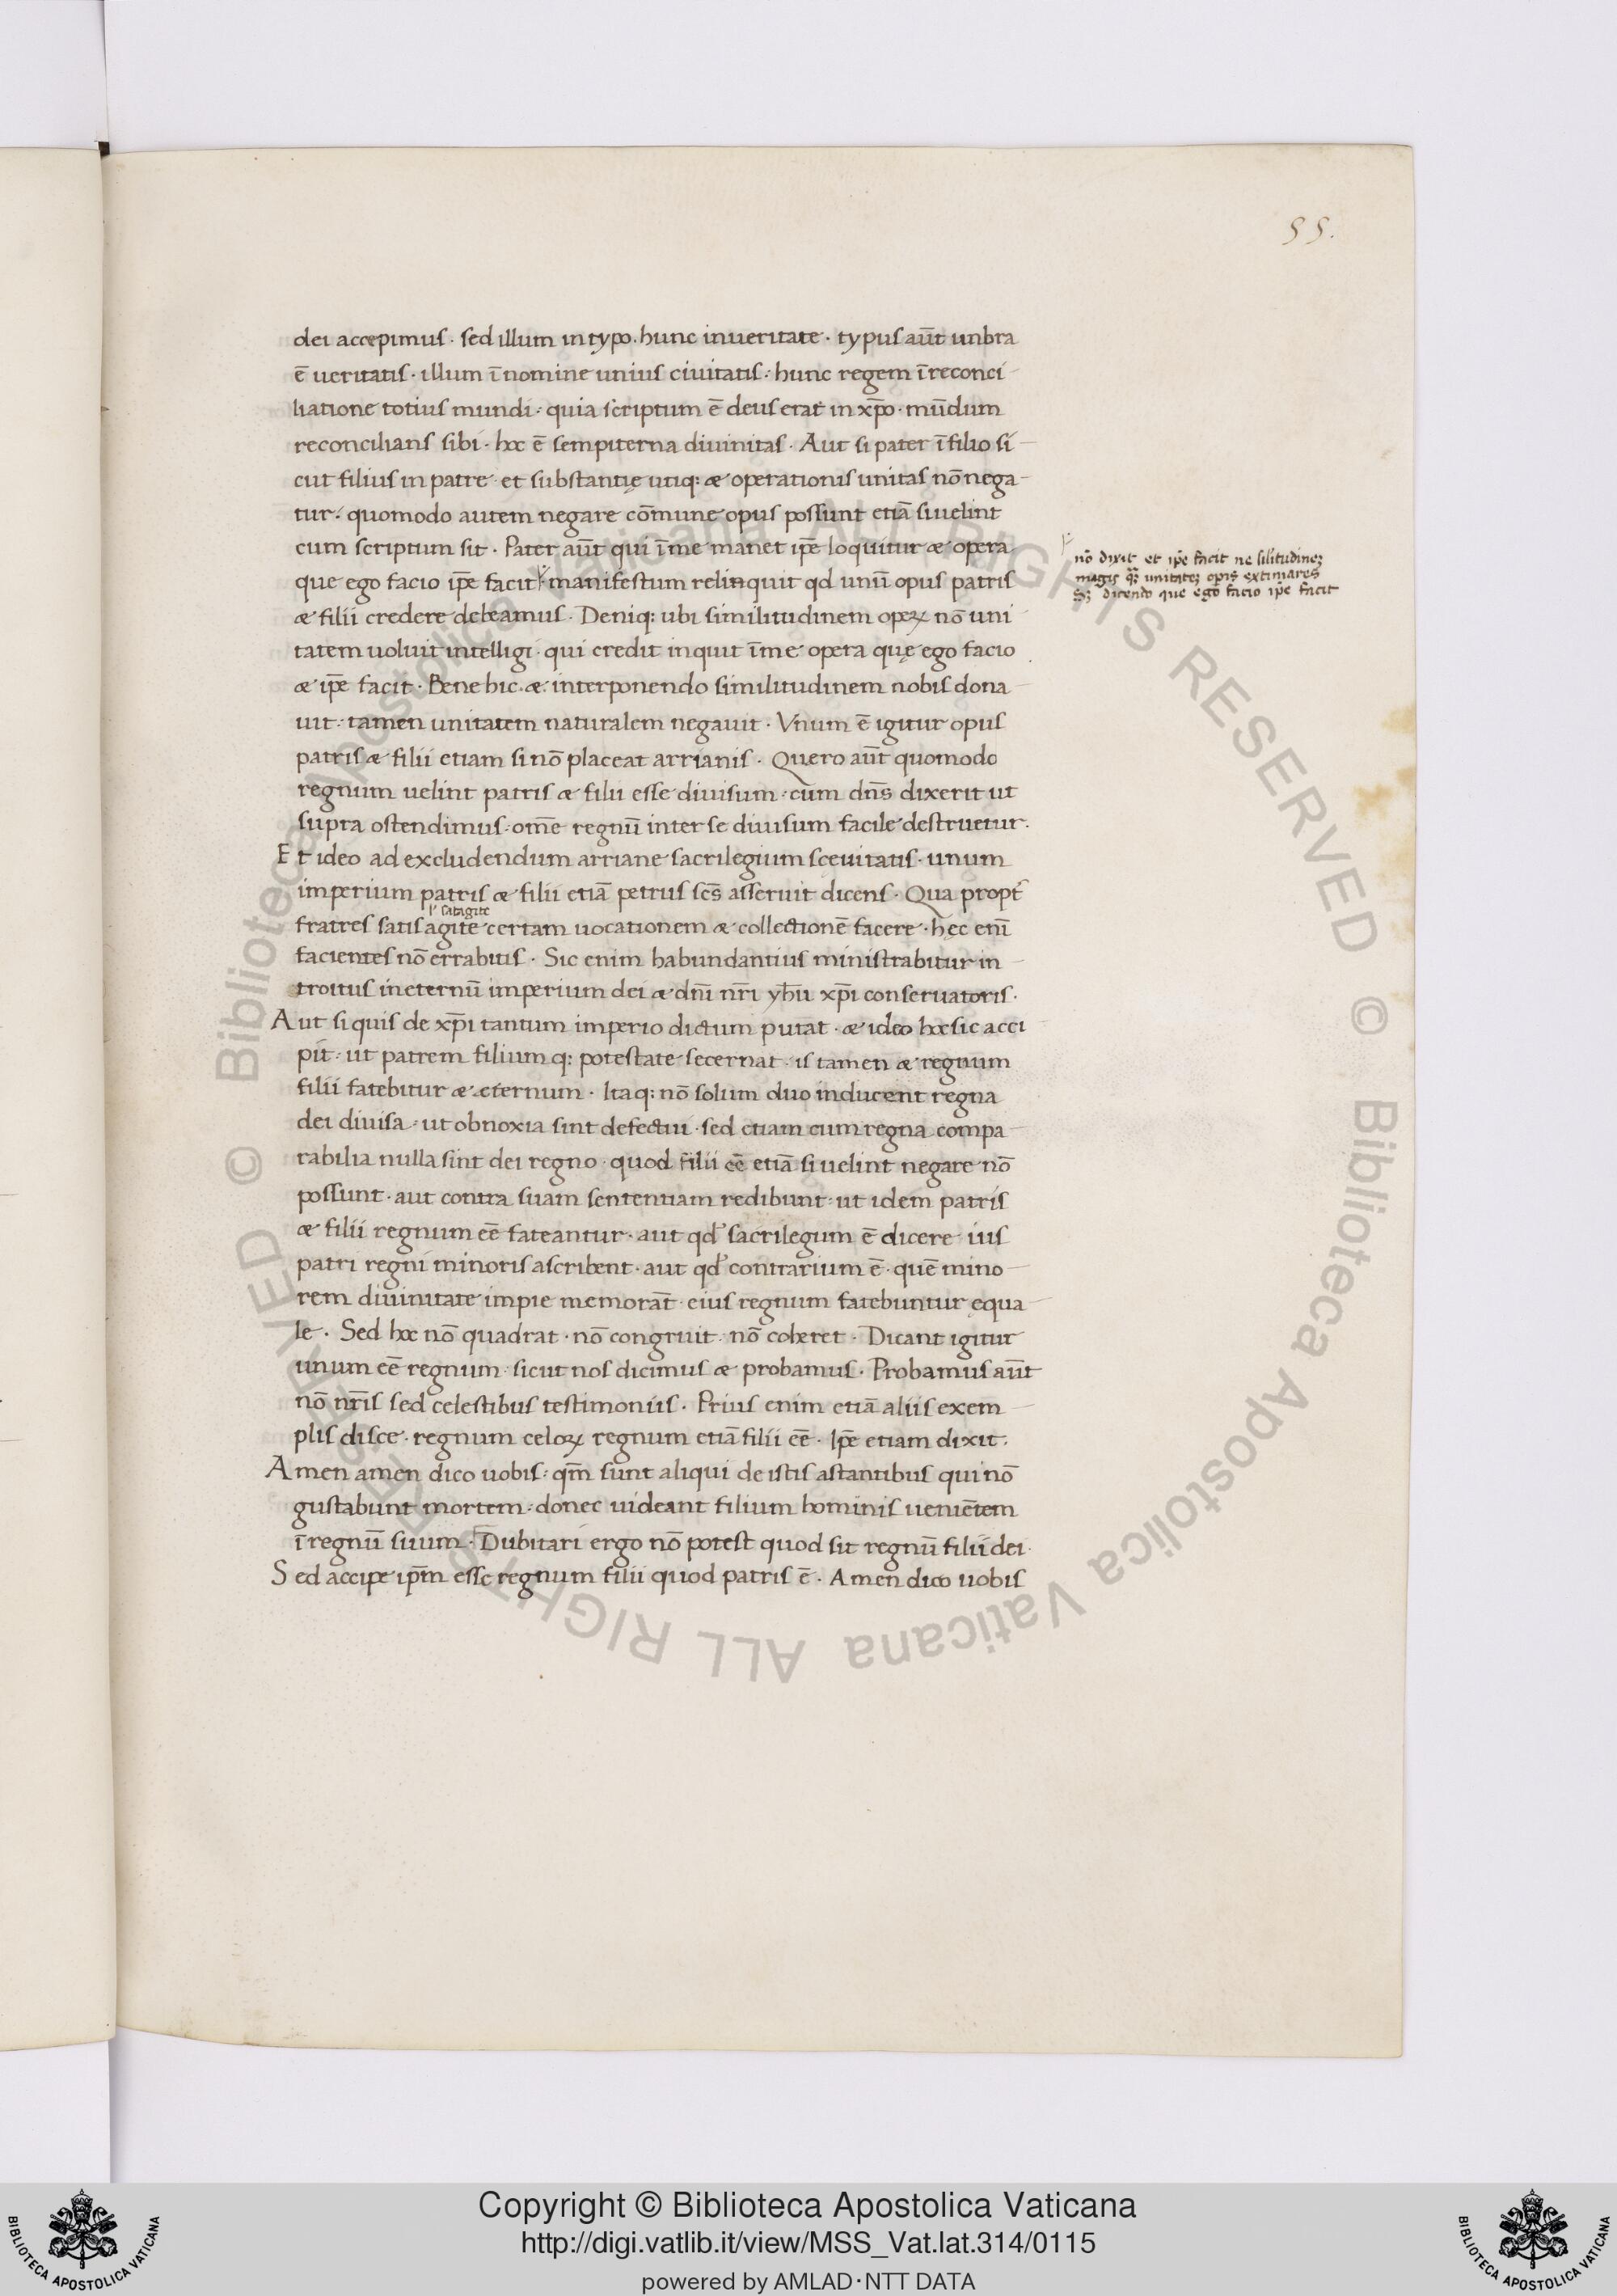 55.
dei accepimus · sed illum in typo · hunc in ueritate · typus aūt unbra
ē ueritatis · illum ī nomine unius ciuitatis : hunc regem ī reconci-
liatione totius mundi : quia scriptum ē deus erat in xp̄o · mūdum
reconcilians sibi · hoc ē sempiterna diuinitas · Aut si pater ī filio si-
cut filius in patre et substantię utiq: æ operationis unitas nō nega-
tur : quomodo autem negare cōmune opus possunt etiā si uelint
cum scriptum sit · Pater aūt qui ī me manet ip̄e loquitur æ opera
que ego facio ip̄e facit · manifestum relinquit qd unū opus patris
æ filii credere debeamus · Deniq: ubi similitudinem operꝝ nō uni
tatem uoluit intelligi · qui credit inquit ī me opera quę ego facio
æ ip̄e facit · Bene hic · æ · interponendo similitudinem nobis dona-
uit : tamen unitatem naturalem negauit · Vnum ē igitur opus
patris æ filii etiam si nō placeat arrianis · Quero aūt quomodo
regnum uelint patris æ filii esse diuisum : cum dn̄s dixerit ut
supra ostendimus : om̄e regnū inter se diuisum facile destruetur ·
Et ideo ad excludendum arriane sacrilegium sceuitatis · unum
imperium patris æ filii etiā petrus sc̄s asseruit dicens · Qua propt̄
l' satagite
fratres satis agite certam uocationem æ collectionē facere · hęc enī
facientes nō errabitis · Sic enim habundantius ministrabitur in-
troitus in eternū imperium dei æ dn̄i nr̄i yh̄u xp̄i conseruatoris ·
Aut si quis de xp̄i tantum imperio dictum putat · æ ideo hoc sic acci
pit : ut patrem filium q: potestate secernat · is tamen æ regnum
filii fatebitur æ eternum · Itaq: nō solum duo inducent regna
dei diuisa : ut obnoxia sint defectui · sed etiam cum regna compa-
rabilia nulla sint dei regno · quod filii eē etiā si uelint negare nō
possunt · aut contra suam sententiam redibunt : ut idem patris
æ filii regnum eē fateantur · aut qd' sacrilegum ē dicere ius
patri regni minoris ascribent · aut qd' contrarium ē · quē mino-
rem diuinitate impie memorāt · eius regnum fatebuntur equa-
le · Sed hoc nō quadrat · nō congruit · nō coheret · Dicant igitur
unum eē regnum · sicut nos dicimus æ probamus · Probamus aūt
nō nr̄is sed celestibus testimoniis · Prius enim etiā aliis exem-
plis disce · regnum celoꝝ regnum etiā filii eē · Ip̄e etiam dixit :
Amen amen dico uobis : qm̄ sunt aliqui de istis astantibus qui nō
gustabunt mortem · donec uideant filium hominis ueniētem
ī regnū suum · Dubitari ergo nō potest quod sit regnū filii dei ·
Sed accipe ip̄m esse regnum filii quod patris ē · Amen dico uobis
nō dixit et ip̄e facit ne silitudineꝫ
magis qꝫ unitateꝫ opis extimares
sꝫ dicendo que ego facio ip̄e facit
© Biblioteca Apostolica Vaticana ALL RIGHTS RESERVED © Biblioteca Apostolica Vaticana ALL RIGHTS RESERVED
Copyright © Biblioteca Apostolica Vaticana
http://digi.vatlib.it/view/MSS_Vat.lat.314/0115
powered by AMLAD·NTT DATA
BIBLIOTECA APOSTOLICA VATICANA
BIBLIOTECA APOSTOLICA VATICANA